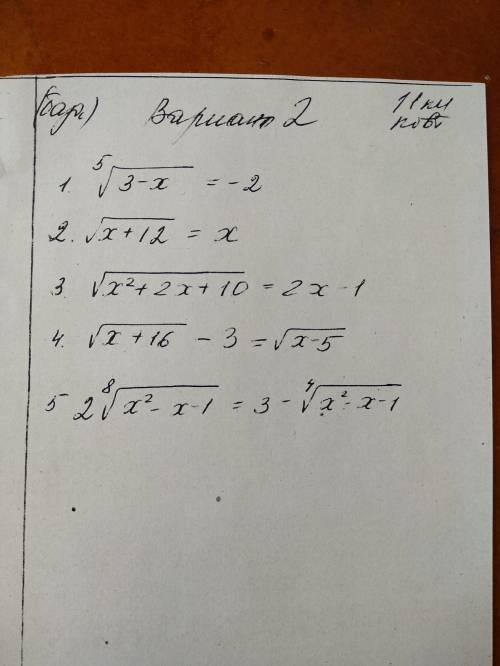 (База) Вариант 2 11кл
1. ⁵√(3-x) = -2
2. √(x+12) = x
3. √(x²+2x+10) = 2x-1
4. √(x+16) - 3 = √(x-5)
5 2 ⁸√(x²-x-1) = 3 - ⁴√(x²-x-1)